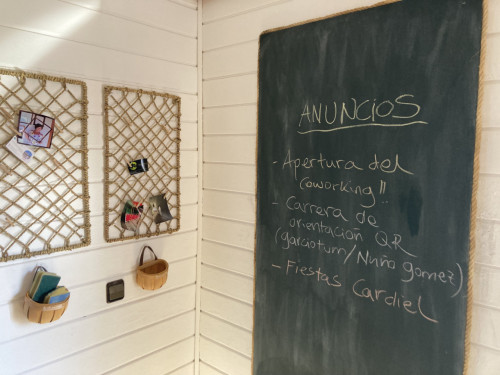 ANUNCIOS
- Apertura del
Coworking!!
- Carrera de
orientación QR
(garciotum/Nuño gomez)
- Fiestas Cardiel